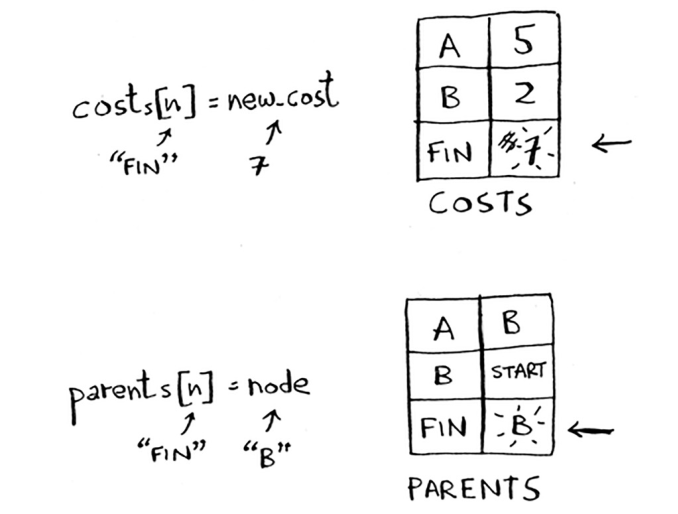 costs[n] = new_cost
"FIN" 7
A 5
B 2
FIN 7
COSTS
parents[n] = node
"FIN" "B"
A B
B START
FIN B
PARENTS